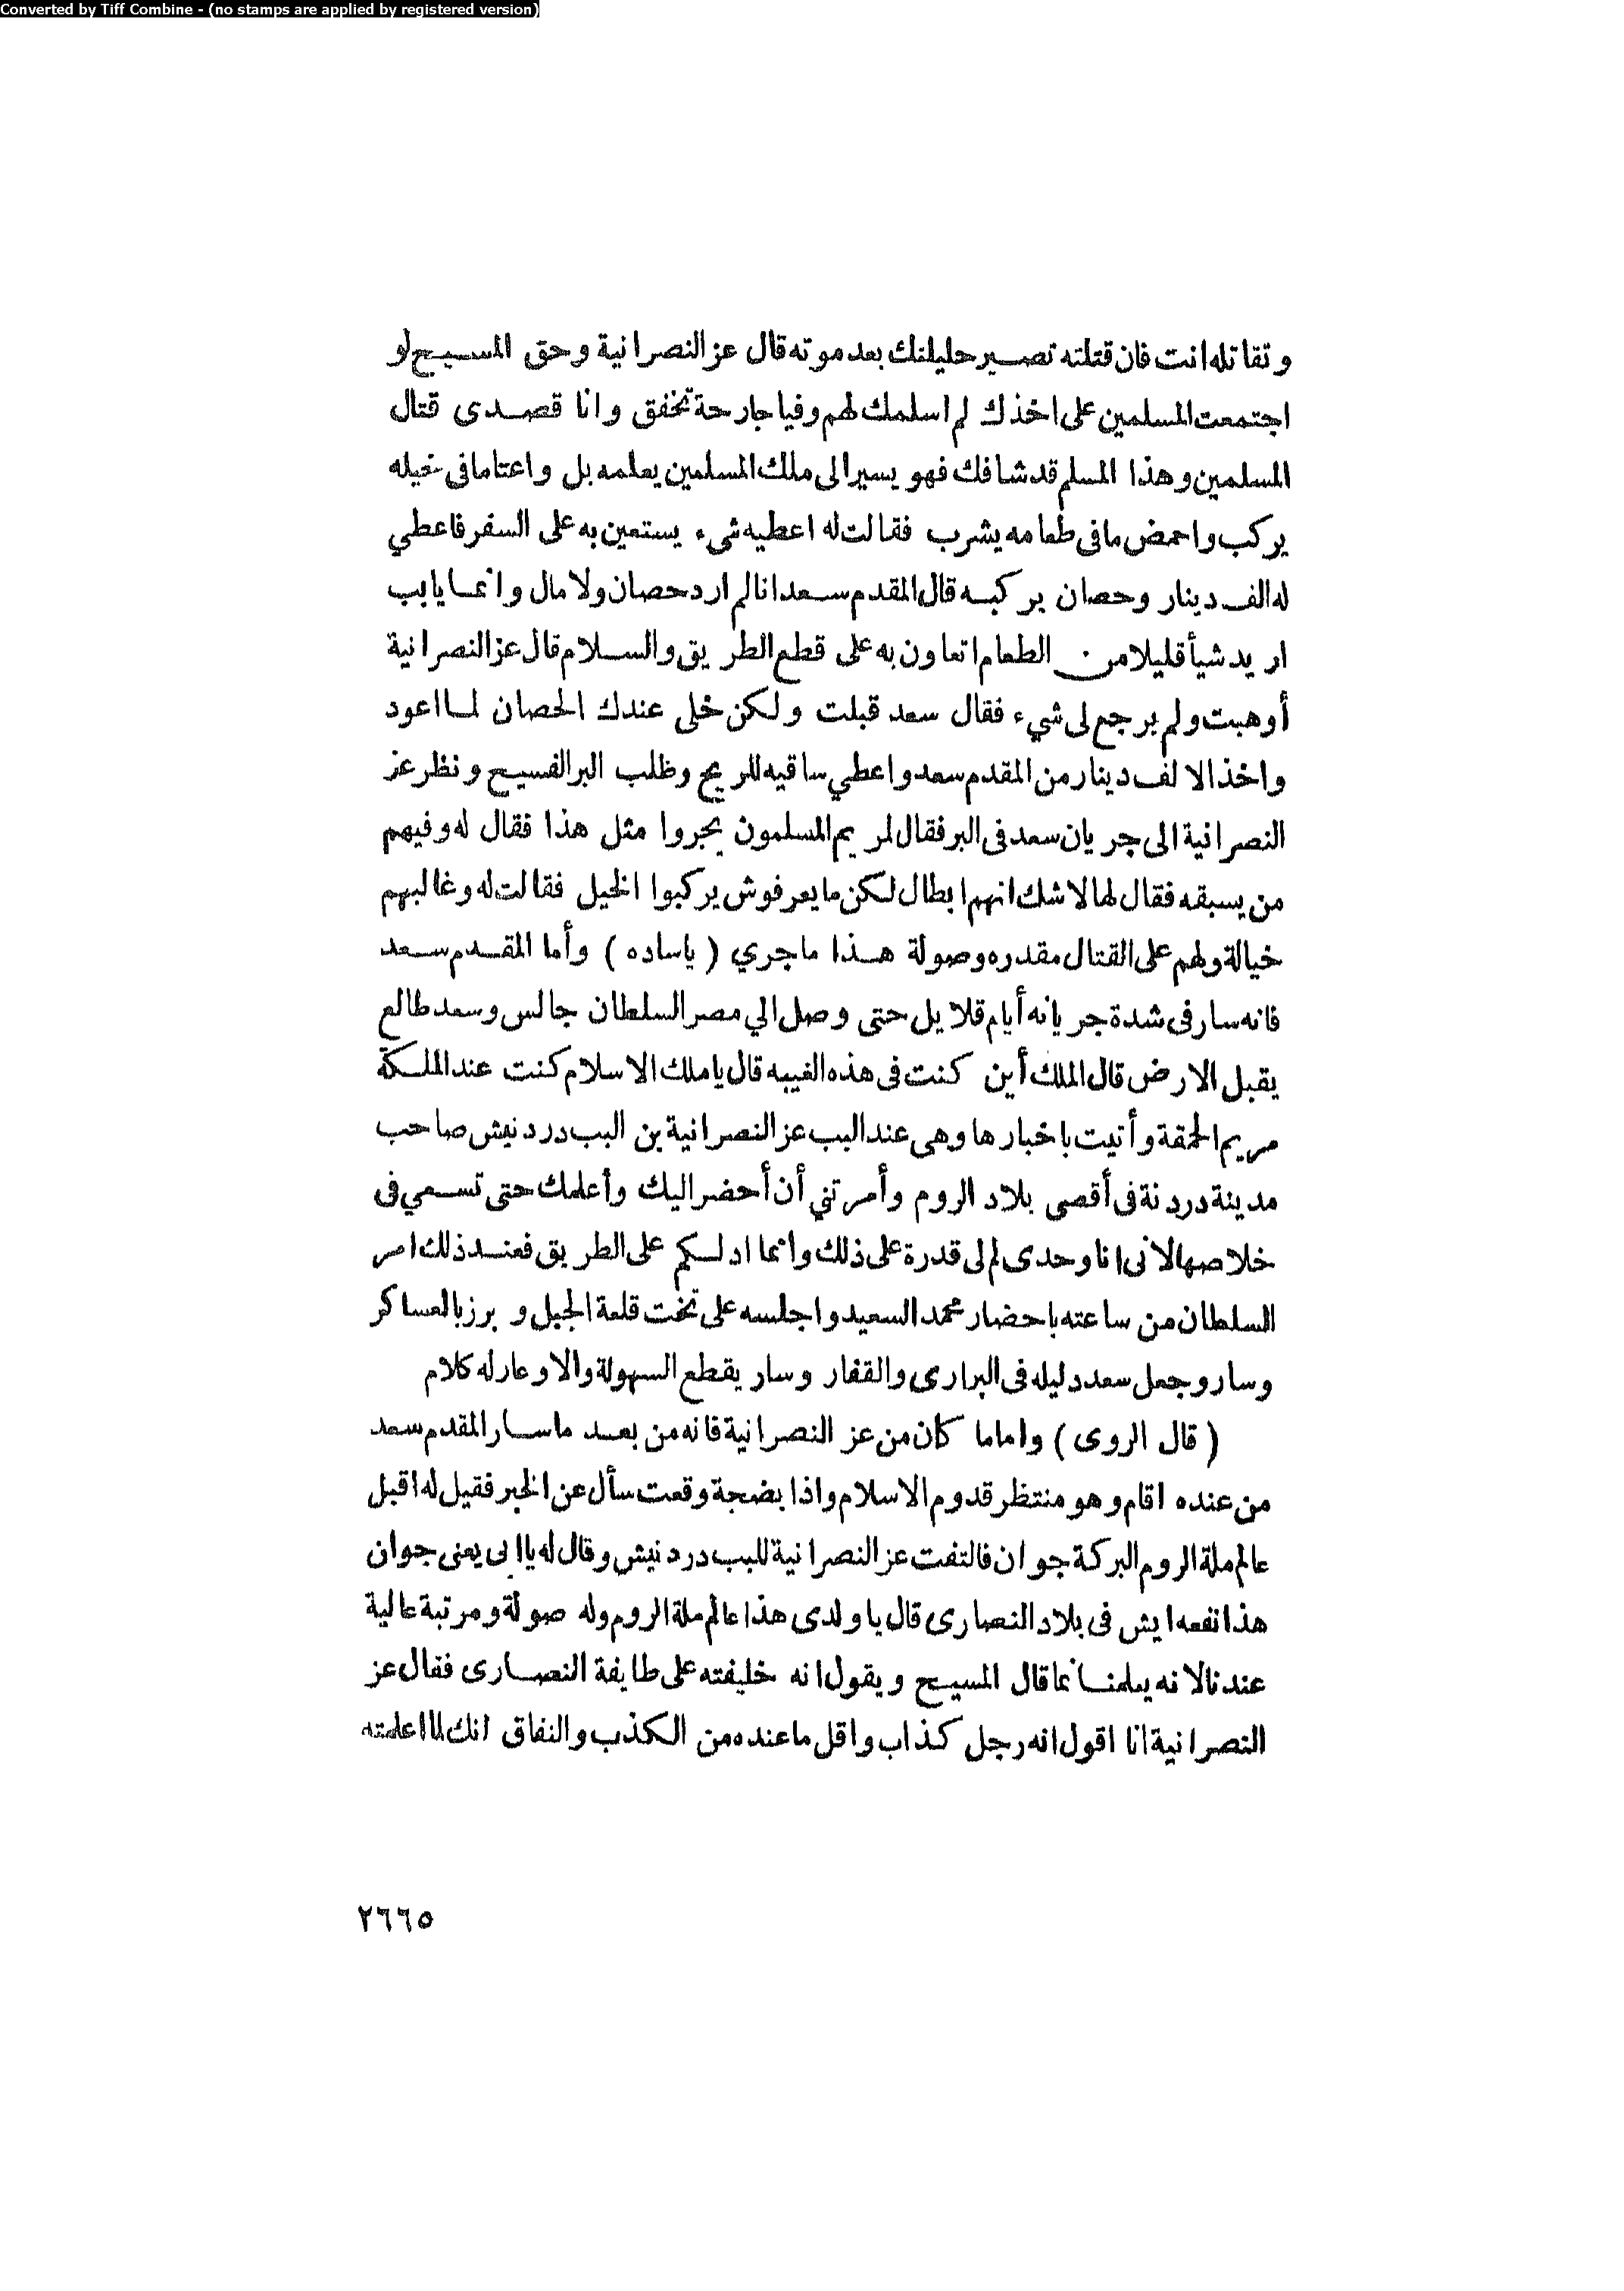 Converted by Tiff Combine - (no stamps are applied by registered version)
وتقاتله انت فان قتلته تصير حليلتك بعد موته قال عز النصرانية وحق المسيح لو
اجتمعت المسلمين على اخذك لم اسلمك لهم وفيا جارحة تخفق وانا قصدى قتال
المسلمين وهذا المسلم قد شافك فهو يسير الى ملك المسلمين يعلمه بل واعتاما فى خيله
يركب واحمض مافى طعامه يشرب فقالت له اعطيه شىء يستعين به على السفر فاعطي
له الف دينار وحصان يركبه قال المقدم سعد انا لم ارد حصان ولا مال وانما يابب
اريد شيأ قليلا من الطعام اتعاون به على قطع الطريق والسلام قال عز النصرانية
أوهبت ولم يرجع لى شيء فقال سعد قبلت ولكن خلى عندك الحصان لما اعود
واخذ الالف دينار من المقدم سعد واعطي ساقيه للريح وظلب البر الفسيح ونظر عز
النصرانية الى جريان سعد فى البر فقال لمريم المسلمون يجروا مثل هذا فقال له وفيهم
من يسبقه فقال لها لاشك انهم ابطال لكن ما يعرفوش يركبوا الخيل فقالت له وغالبهم
خيالة ولهم على القتال مقدره وصولة هذا ماجري ( ياساده ) وأما المقدم سعد
فانه سار فى شدة جريانه أيام قلايل حتى وصل الي مصر السلطان جالس وسعد طالع
يقبل الارض قال الملك أين كنت فى هذه الغيبه قال ياملك الاسلام كنت عند الملكة
مريم الحمقة وأتيت باخبارها وهى عند البب عز النصرانية بن البب دردنيش صاحب
مدينة دردنة فى أقصى بلاد الروم وأمرتني أن أحضر اليك وأعلمك حتى تسمي فى
خلاصها لانى انا وحدى لم لى قدرة على ذلك وانما ادلكم على الطريق فعند ذلك امر
السلطان من ساعته باحضار محمد السعيد واجلسه على تخت قلعة الجبل وبرز بالعساكر
وسار وجعل سعد دليله فى البرارى والقفار وسار يقطع السهولة والاوعار له كلام
( قال الروى ) واماما كان من عز النصرانية فانه من بعد ماسار المقدم سعد
من عنده اقام وهو منتظر قدوم الاسلام واذا بضجة وقعت سأل عن الخبر فقيل له اقبل
عالم ملة الروم البركة جوان فالتفت عز النصرانية للبب دردنيش وقال له يا ابى يعنى جوان
هذا نفعه ايش فى بلاد النصارى قال يا ولدى هذا عالم ملة الروم وله صولة ومرتبة عالية
عندنا لانه يعلمنا بما قال المسيح ويقول انه خليفته على طايفة النصارى فقال عز
النصرانية انا اقول انه رجل كذاب واقل ما عنده من الكذب والنفاق انك لما اعلمته
٢٦٦٥